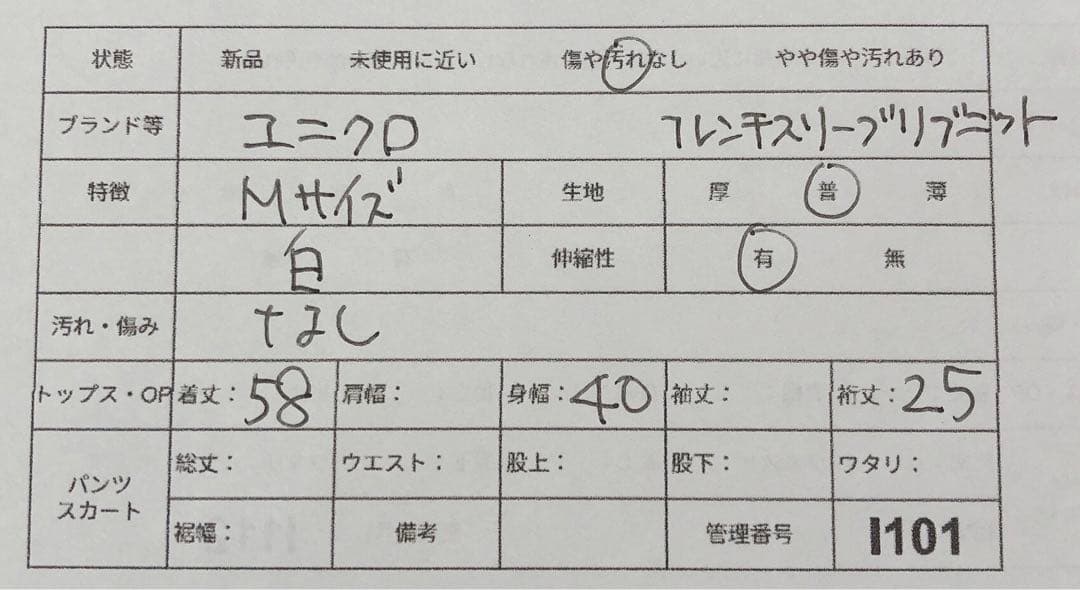 状態 新品 未使用に近い 傷や汚れなし やや傷や汚れあり
ブランド等 ユニクロ フレンチスリーブリブニット
特徴 Mサイズ 生地 厚 普 薄
白 伸縮性 有 無
汚れ・傷み なし
トップス・OP 着丈：58 肩幅： 身幅：40 袖丈： 裄丈：25
パンツ スカート 総丈： ウエスト： 股上： 股下： ワタリ：
裾幅： 備考 管理番号 I101